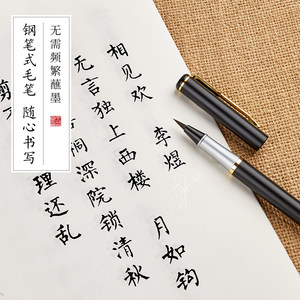 无需频繁蘸墨
钢笔式毛笔 随心书写
相见欢 李煜
无言独上西楼 月如钩
桐深院锁清秋
剪
理还乱